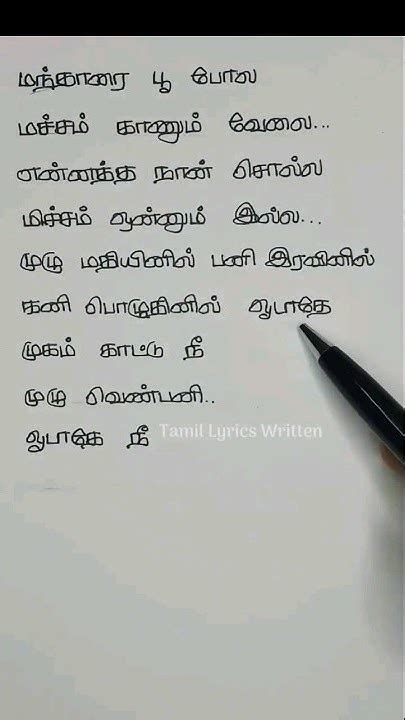 மந்காரை பூ போல
மச்சம் காணும் வேலை...
என்னத்த நான் சொல்ல
மிச்சம் ஒன்னும் இல்ல...
முழு மதியினில் பனி இரவினில்
கனி பொழுதினில் ஓடாதே
முகம் காட்டு நீ
முழு வெண்பனி..
ஓடாதே நீ
Tamil Lyrics Written